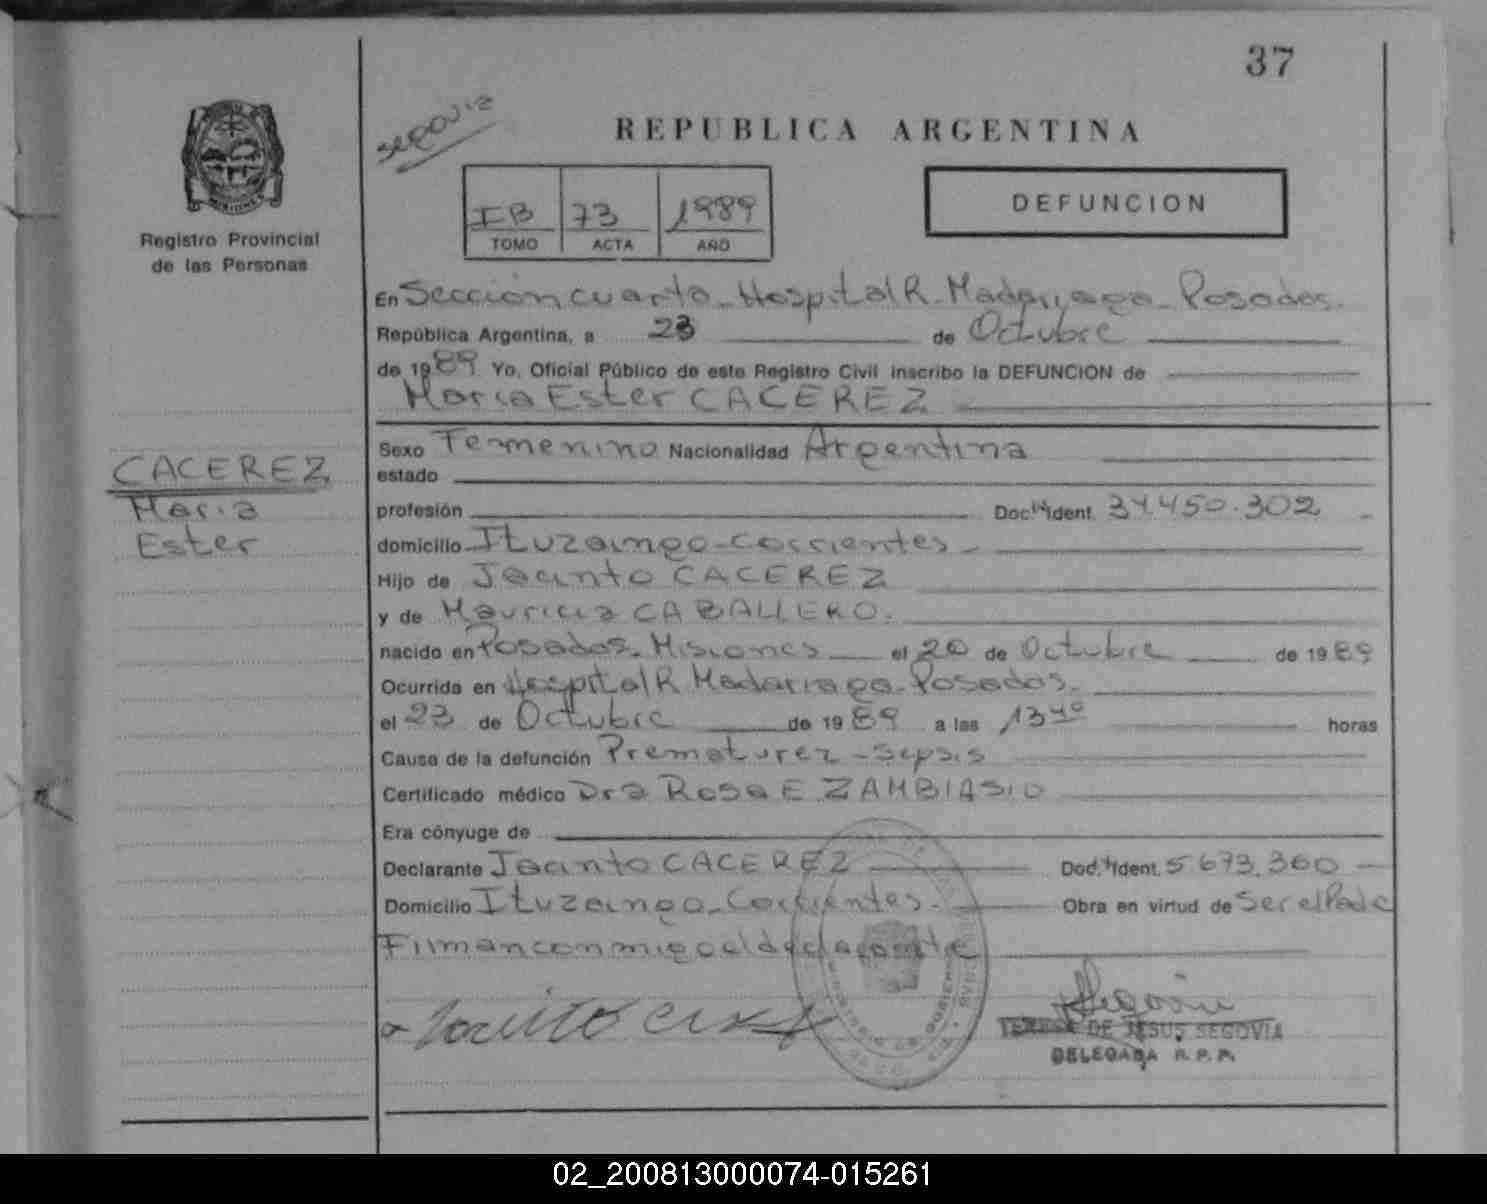 37
segovia
REPUBLICA ARGENTINA
IB 73 1989
TOMO ACTA AÑO
DEFUNCION
Registro Provincial
de las Personas
En Sección cuarta - Hospital R. Madariaga - Posadas.
República Argentina, a 23 de Octubre
de 1989 Yo, Oficial Público de este Registro Civil inscribo la DEFUNCION de
Maria Ester CACEREZ
CACEREZ
Maria
Ester
Sexo Femenino Nacionalidad Argentina
estado
profesión Doc. Ident. 34.450.302
domicilio Ituzaingo - Corrientes -
Hijo de Jacinto CACEREZ
y de Mauricia CABALLERO.
nacido en Posadas. Misiones el 20 de Octubre de 1989
Ocurrida en Hospital R. Madariaga - Posadas.
el 23 de Octubre de 1989 a las 13 40 horas
Causa de la defunción Prematurez - sepsis
Certificado médico Dra Rosa E. ZAMBIASIO
Era cónyuge de
Declarante Jacinto CACEREZ Doc. Ident. 5.673.360
Domicilio Ituzaingo - Corrientes. Obra en virtud de Ser el Padre
Firman conmigo el declarante
TERESA DE JESUS SEGOVIA
DELEGADA R. P. P.
02_200813000074-015261